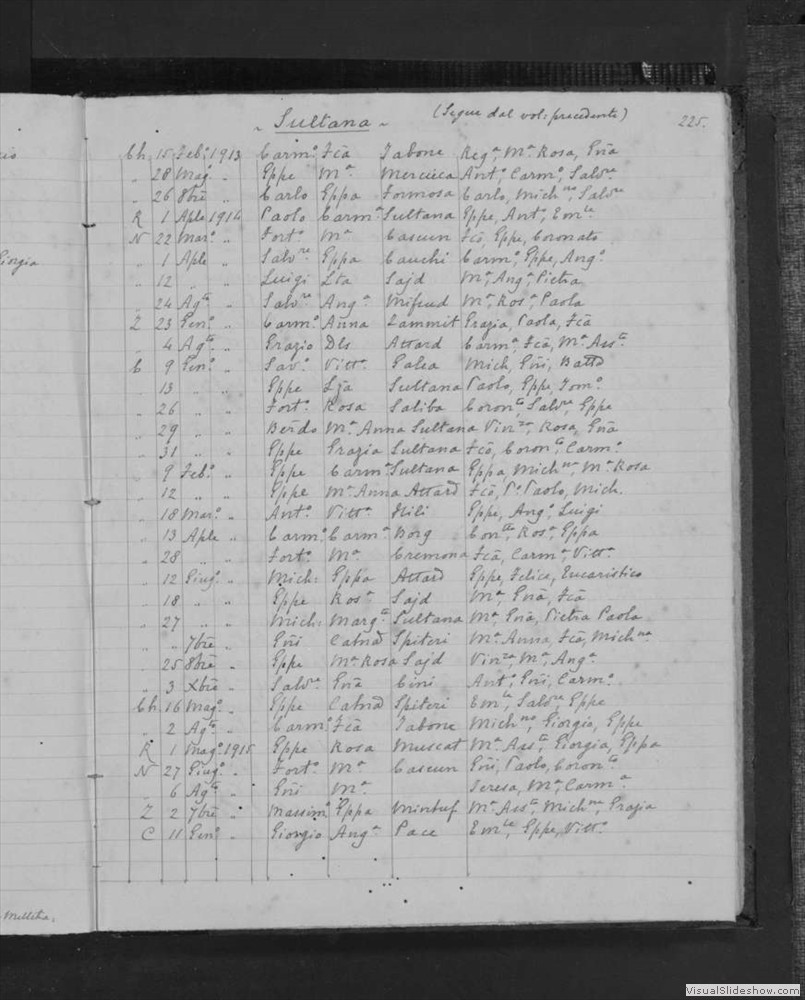 ~ Sultana ~ (Segue dal vol: precedente) 225.
Ch 15 Feb.º 1913 Carm.º Fcā Tabone Reg.ª, M.ª Rosa, Gnā
„ 28 Mag.º „ Gppe M.ª Mercieca Ant.º, Carm.º, Salv.re
„ 26 8bre „ Carlo Gppa Formosa Carlo, Mich.na, Salv.re
R 1 Aple 1914 Paolo Carm.ª Sultana Gppe, Ant.º, Em.le
N 22 Mar.º „ Fort.º M.ª Cascun Fcō, Gppe, Coronato
„ 1 Aple „ Salv.re Gppa Cauchi Carm.º, Gppe, Ang.º
„ 12 „ „ Luigi Sajd M.ª, Ang.ª, Pietra
„ 24 Ag.to „ Salv.re Ang.ª Mifsud M.ª Ros.ª, Paola
Z 23 Gen.º „ Carm.º Anna Zammit Grazia, Paola, Fcā
„ 4 Ag.to „ Grazio Dls Attard Carm.ª, Fcā, M.ª Ass.ta
C 9 Gen.º „ Sav.º Vitt.ª Galea Mich, Gñi, Battā
„ 13 „ „ Gppe Lza Sultana Paolo, Gppe, Tom.º
„ 26 „ „ Fort.º Rosa Saliba Coron.to, Salv.re, Gppe
„ 29 „ „ Berdo M.ª Anna Sultana Vin.za, Rosa, Gnā
„ 31 „ „ Gppe Grazia Sultana Fcō, Coron.to, Carm.º
„ 9 Feb.º „ Gppe Carm.ª Sultana Gppa, Mich.na, M.ª Rosa
„ 12 „ „ Gppe M.ª Anna Attard Fcō, P.º Paolo, Mich.
„ 18 Mar.º „ Ant.º Vitt.ª Hili Gppe, Ang.º, Luigi
„ 13 Aple „ Carm.º Carm.ª Borg Con.tta, Ros.ª, Gppa
„ 28 „ „ Fort.º M.ª Cremona Fcā, Carm.ª, Vitt.ª
„ 12 Giug.º „ Mich: Gppa Attard Gppe, Felice, Eucaristico
„ 18 „ „ Gppe Ros.ª Sajd M.ª, Gnā, Fcā
„ 27 „ „ Mich: Marg.ta Sultana M.ª, Gnā, Pietra Paola
„ „ 7bre „ Gñi Catnā Spiteri M.ª Anna, Fcā, Mich.na
„ 25 8bre „ Gppe M.ª Rosa Sajd Vin.za, M.ª, Ang.ª
„ 3 Xbre „ Salv.re Gnā Cini Ant.º, Gñi, Carm.º
Ch. 16 Mag.º „ Gppe Catnā Spiteri Em.le, Salv.re, Gppe
„ 2 Ag.to „ Carm.º Fcā Tabone Mich.na, Giorgia, Gppe
R 1 Mag.º 1915 Gppe Rosa Muscat M.ª Ass.ta, Giorgia, Gppa
N 27 Giug.º „ Fort.º M.ª Cascun Gñi, Paolo, Coron.to
„ 6 Ag.to „ Gñi M.ª Teresa, M.ª, Carm.ª
Z 2 7bre „ Massim.º Gppa Mintuf M.ª Ass.ta, Mich.na, Grazia
C 11 Gen.º „ Giorgio Ang.ª Pace Em.le, Gppe, Vitt.º
VisualSlideshow.com